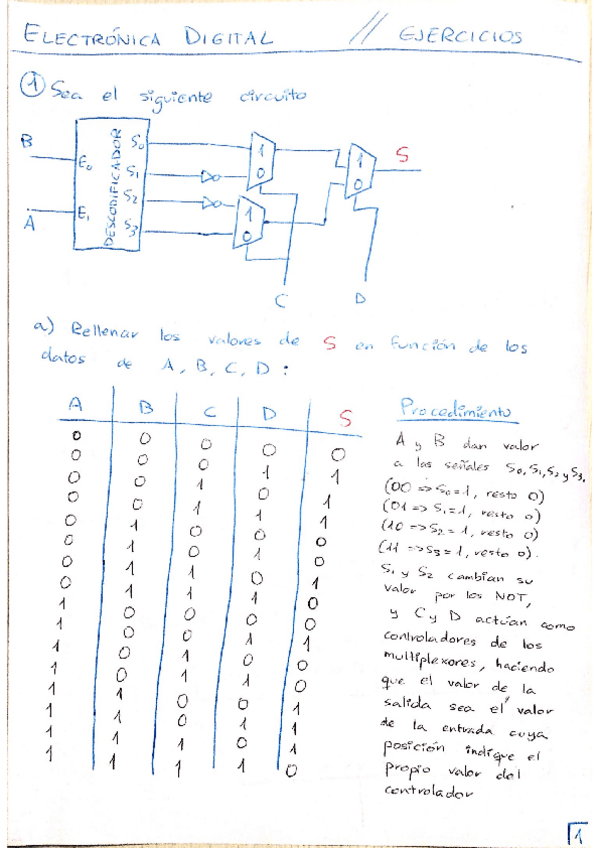 ELECTRÓNICA DIGITAL // EJERCICIOS
1 Sea el siguiente circuito
B
A
E0
E1
DESCODIFICADOR
S0
S1
S2
S3
1
0
1
0
1
0
S
C
D
a) Rellenar los valores de S en función de los
datos de A, B, C, D:
A B C D S
0 0 0 0 0
0 0 0 1 1
0 0 1 0 1
0 0 1 1 1
0 1 0 0 0
0 1 0 1 0
0 1 1 0 1
0 1 1 1 0
1 0 0 0 0
1 0 0 1 1
1 0 1 0 0
1 0 1 1 0
1 1 0 0 1
1 1 0 1 1
1 1 1 0 1
1 1 1 1 0
Procedimiento
A y B dan valor
a las señales S0, S1, S2 y S3.
(00 => S0=1, resto 0)
(01 => S1=1, resto 0)
(10 => S2=1, resto 0)
(11 => S3=1, resto 0).
S1 y S2 cambian su
valor por los NOT,
y C y D actúan como
controladores de los
multiplexores, haciendo
que el valor de la
salida sea el valor
de la entrada cuya
posición indique el
propio valor del
controlador
1